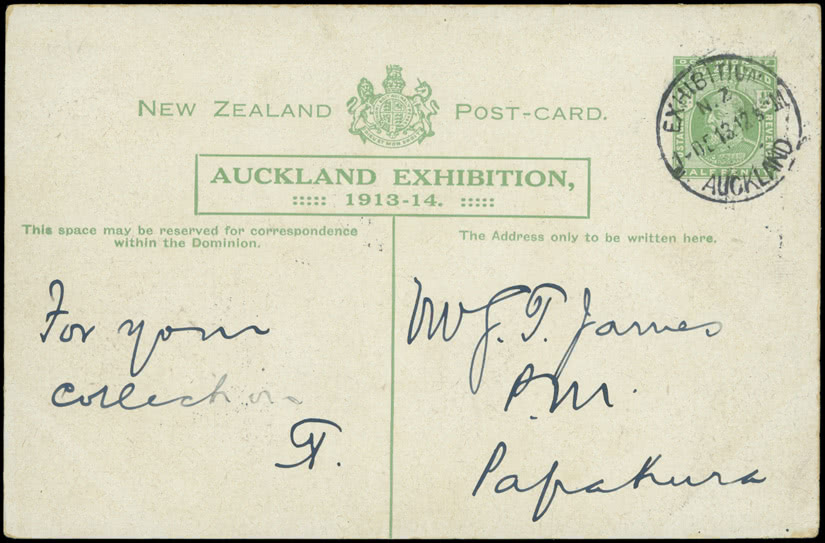 NEW ZEALAND POST-CARD.
AUCKLAND EXHIBITION,
1913-14.
EXHIBITION
N.Z
1-DE 13·12
AUCKLAND
This space may be reserved for correspondence
within the Dominion.
The Address only to be written here.
For your
collection
J. T. James
P.M.
Papakura